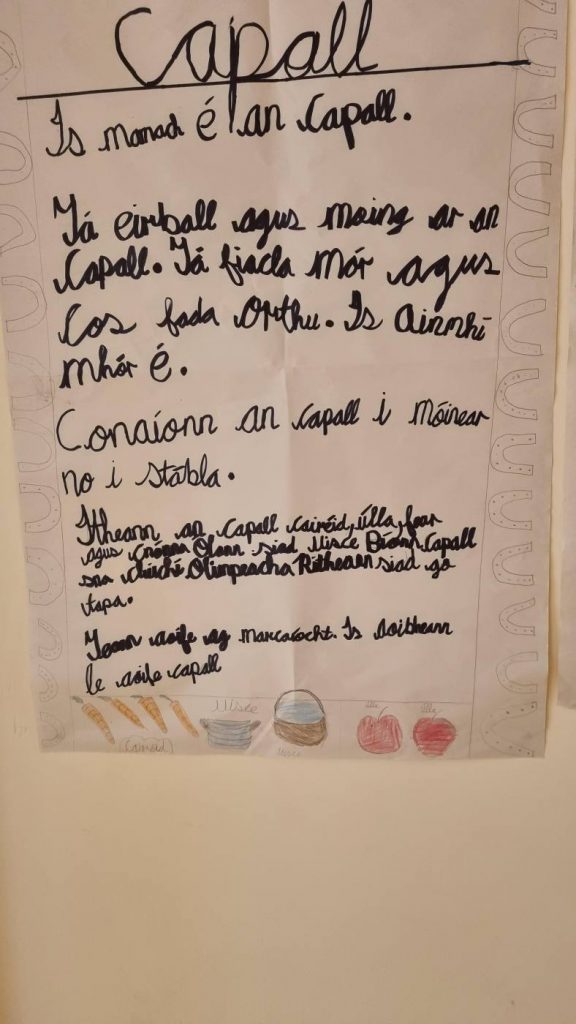 Capall
Is mamach é an Capall.
Tá eirball agus moing ar an
Capall. Tá fiacla mór agus
Cos fada Orthu. Is ainmhí
mhór é.
Conaíonn an Capall i móinear
no i stábla.
Itheann an Capall Cairéid, úlla, fear
agus Ólann siad Uisce Bíonn Capall
sna Cluichí Olimpeacha Ritheann siad go
tapa.
Teann aoife ag Marcaíocht. Is aoibheann
le aoife capall
Uisce Úlla Úlla
Cairéid Uisce